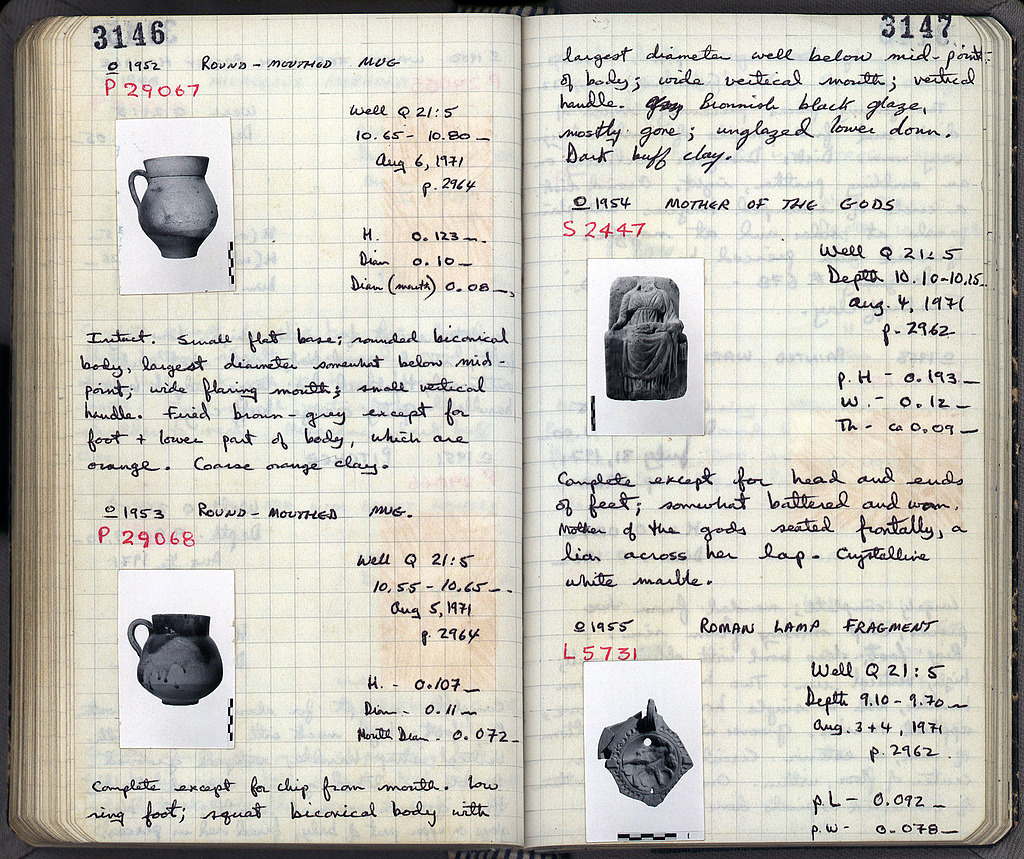 3146
O 1952 ROUND-MOUTHED MUG
P 29067
Well Q 21:5
10.65 - 10.80 m
Aug 6, 1971
p. 2964
H. 0.123 m.
Diam 0.10 m
Diam (mouth) 0.08 m,
Intact. Small flat base; rounded biconical
body, largest diameter somewhat below mid-
point; wide flaring mouth; small vertical
handle. Fired brown-grey except for
foot + lower part of body, which are
orange. Coarse orange clay.
O 1953 ROUND-MOUTHED MUG.
P 29068
Well Q 21:5
10.55 - 10.65 m.
Aug 5, 1971
p. 2964
H. - 0.107 m
Diam - 0.11 m
Mouth Diam - 0.072 m
Complete except for chip from mouth. Low
ring foot; squat biconical body with
3147
largest diameter well below mid-point
of body; wide vertical mouth; vertical
handle. Brownish black glaze,
mostly gone; unglazed lower down.
Dark buff clay.
O 1954 MOTHER OF THE GODS
S 2447
Well Q 21:5
Depth 10.10-10.15 m
Aug. 4, 1971
p. 2962
p. H - 0.193 m
W. - 0.12 m
Th - ca 0.09 m
Complete except for head and ends
of feet; somewhat battered and worn.
Mother of the gods seated frontally, a
lion across her lap. Crystalline
white marble.
O 1955 ROMAN LAMP FRAGMENT
L 5731
Well Q 21:5
Depth 9.10 - 9.70 m
Aug. 3+4, 1971
p. 2962
p. L - 0.092 m
p. W - 0.078 m